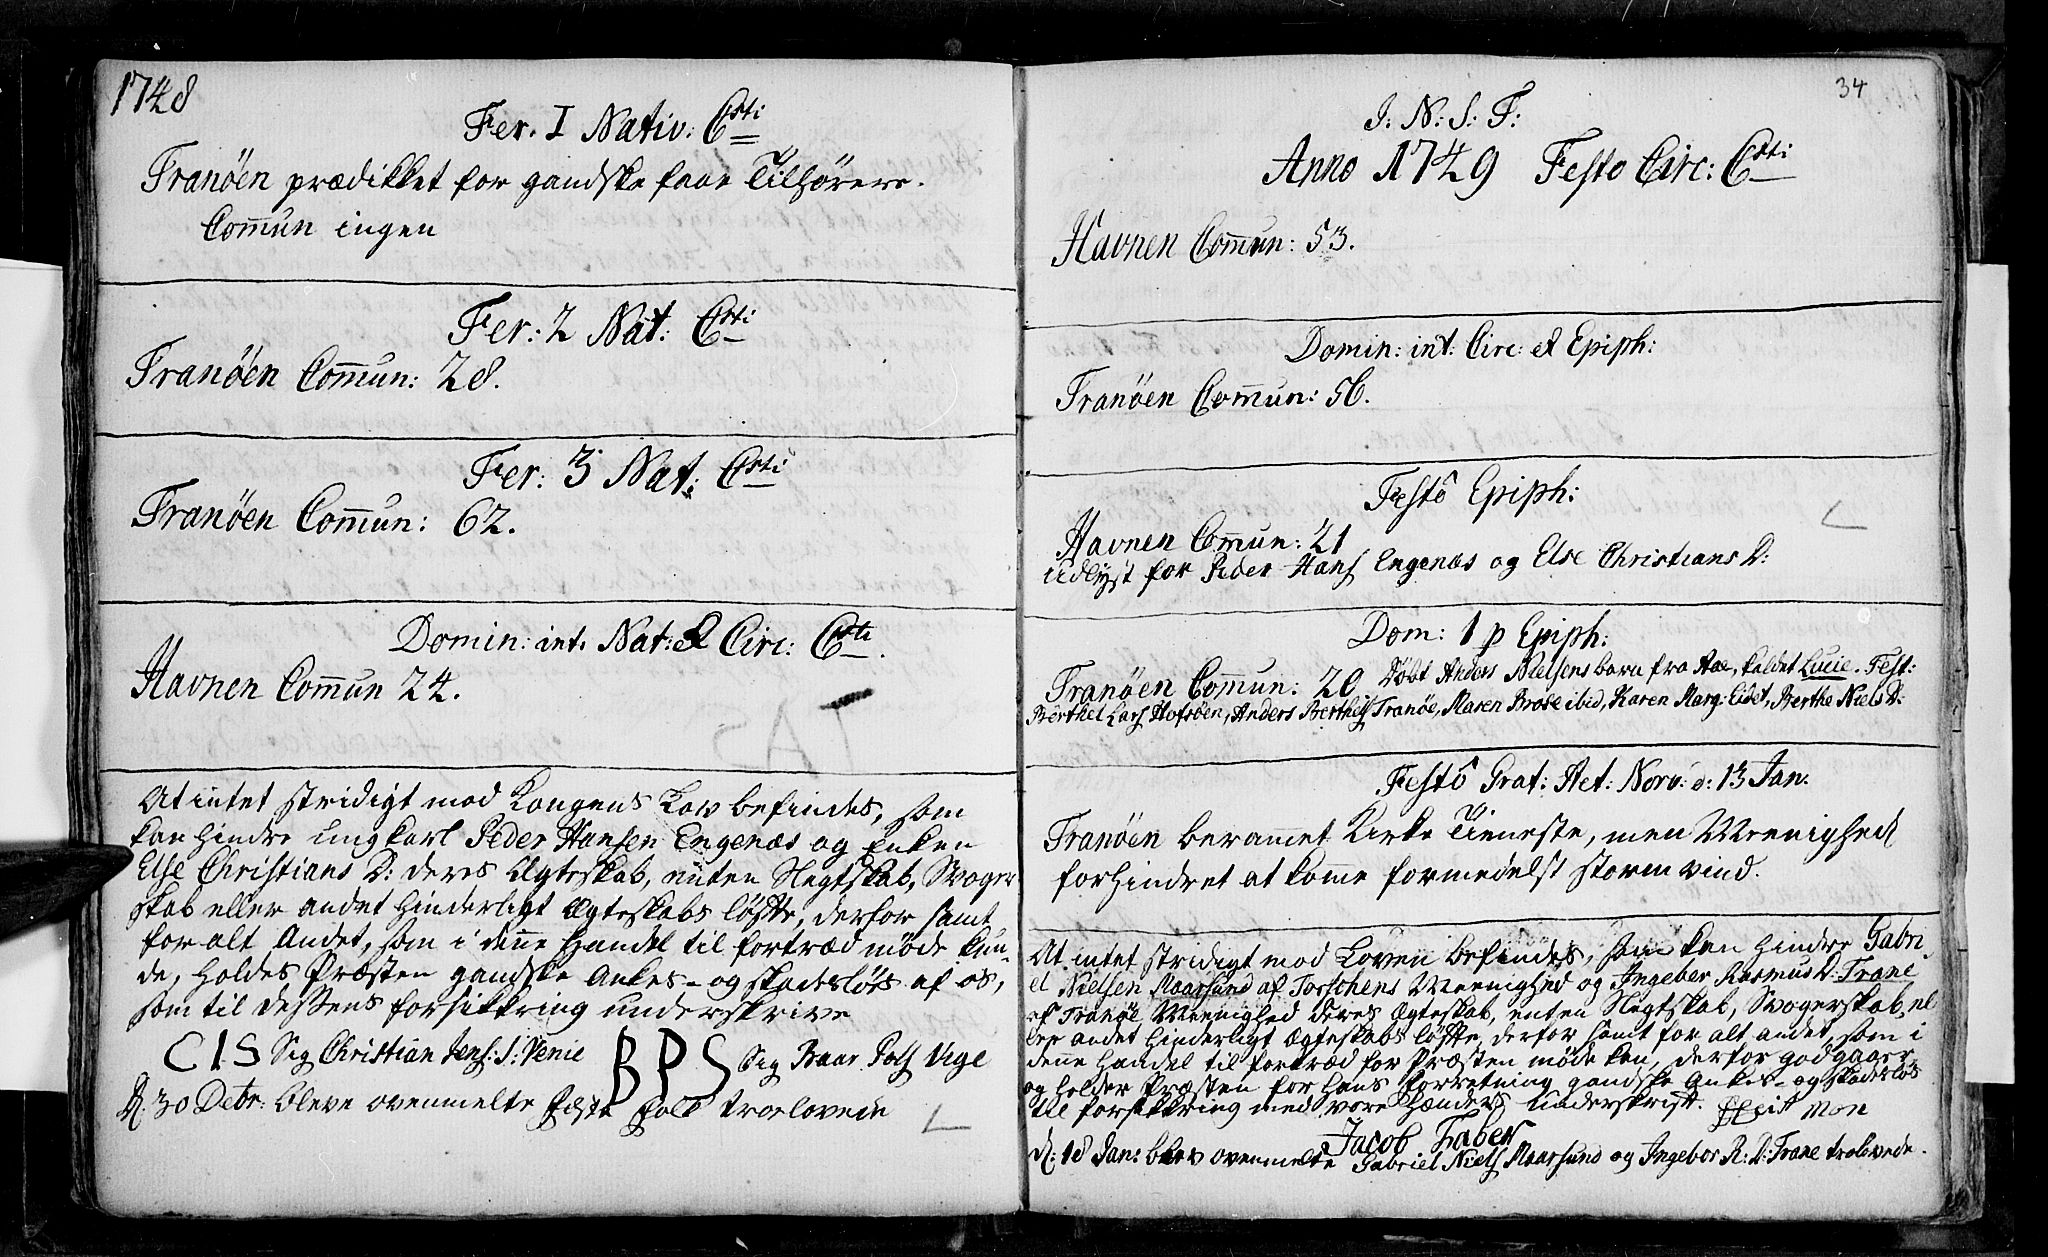 1748
Fer. I Nativ: Csti
Tranöen prædikket for gandske faae Tilhörere.
Com̄un ingen
Fer: 2 Nat: Csti
Tranöen Com̄un: 28.
Fer: 3 Nat: Csti
Tranöen Com̄un: 62.
Domin: int. Nat: & Circ: Csti.
Havnen Com̄un 24.
At intet stridigt mod Kongens Lov befindes, som
kan hindre ungkarl Peder Hansen Engenæs og Enken
Else Christians D: deres Ægteskab, enten Slegtskab, Svoger
skab eller andet hinderligt Ægteskabs löfte, derfor samt
for alt Andet, som i den̄e Handel til fortræd möde kun-
de, holdes Præsten gandske Ankes- og skadeslös af os,
som til dessens forsikkring underskrive
CIS Sig Christian Jens: S: Venie BPS Sig Baar Pols Vige
D: 30 Debr: bleve ovenmelte Feste Folk troelovede
34
J. N: S: F:
Anno 1749 Festo Circ: Csti
Havnen Com̄un: 53.
Domin: int: Circ: et Epiph:
Tranöen Com̄un: 56.
Festô Epiph:
Havnen Com̄un: 21
Udlyst for Peder Hans Engenæs og Else Christians D:
Dom: 1 p Epiph:
Tranöen Com̄un: 20 Döbt Anders Nielsens barn fra Aae, kaldet Lucie. Test:
Berthel Lars Hofsöen, Anders Berthels Tranöe, Maren Brose ibid, Karen Marg: Eidet, Berthe Niels D:
Festô Grat: Act: Norv: d: 13 Jan:
Tranöen beram̄et Kirke Tieneste, men Meenighed
forhindret at kom̄e formedelst storm vind.
At intet stridigt mod Loven befindes, som kan hindre Gabri
el Nielsen Maarsund af Torschens Meenighed og Ingeber Rasmus D: Trane
af Tranöe Meenighed deres Ægteskab, enten Slegtskab, Svogerskab, el
ler andet hinderligt Ægteskabs löfte, derfor samt for alt andet, som i
den̄e Handel til fortræd for Præsten möde kan, derfor godgiöre
og holder Præsten for hans forretning gandske Ankes- og skadeslös
til forsikkring med vore Hænders Underskrift. Mon
Jacob Faber
D: 18 Jan: blev ovenmelte Gabriel Niels Maarsund og Ingebor R: D: Trane trolovede.